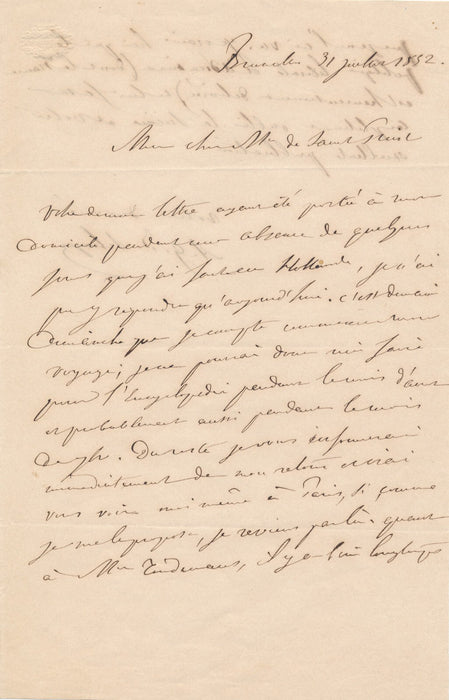 Bruxelles 31 juillet 1852.
Mon cher Mr de Saint Priest
Votre dernière lettre ayant été portée à mon
domicile pendant une absence de quelques
jours que j'ai faite en Hollande, je n'ai
pu y répondre qu'aujourd'hui. c'est demain
Dimanche que je compte commencer mon
voyage; je ne pourrai donc rien faire
pour l'Encyclopédie pendant le mois d'août
et probablement aussi pendant le mois
de 7bre. Du reste je vous informerai
immédiatement de mon retour et irai
vous voir moi même à Paris, si comme
je me le propose, je reviens par là. quant
à Mr , il y a bien longtemps